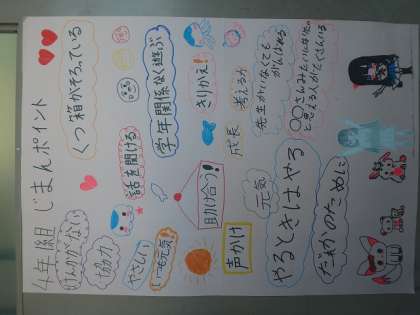 4年組 じまんポイント
くつ箱がそろっている
けんかがない
協力
話を聞ける
学年関係なく遊ぶ
やさしい
いつも元気
助け合う
きりかえ!
成長
考える力
声かけ
元気
先生がいなくても
がんばれる
○○さんみたいになりたい
と思える人がたくさんいる
やるときはやる
だれかのために